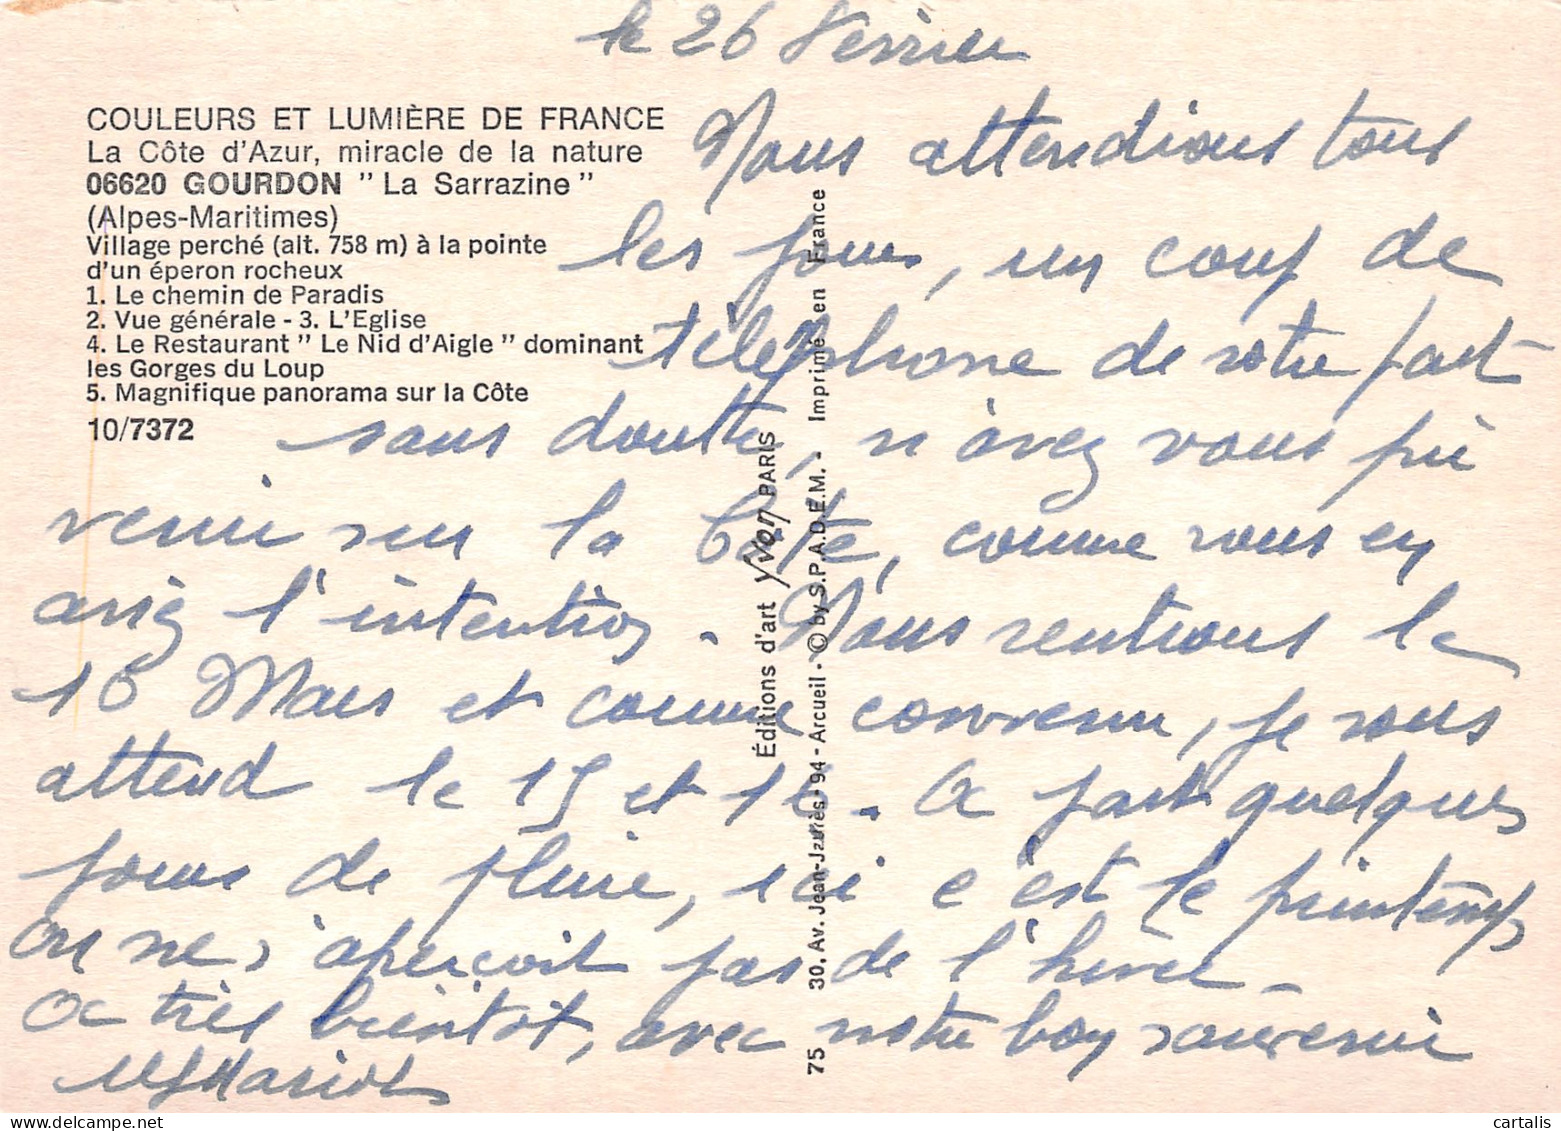 le 26 Février
COULEURS ET LUMIÈRE DE FRANCE
La Côte d'Azur, miracle de la nature
06620 GOURDON " La Sarrazine "
(Alpes-Maritimes)
Village perché (alt. 758 m) à la pointe
d'un éperon rocheux
1. Le chemin de Paradis
2. Vue générale - 3. L'Eglise
4. Le Restaurant " Le Nid d'Aigle " dominant
les Gorges du Loup
5. Magnifique panorama sur la Côte
10/7372
Nous attendions tous
les jours, un coup de
téléphone de votre part
sans doutte, n'avez vous pu
venir sur la Côte, comme vous en
aviez l'intention. Nous rentrons le
10 Mars et comme convenu, je vous
attend le 15 et 16. On a fait quelques
jours de pluie, ici c'est le printemps
on ne s'aperçoit pas de l'hiver.
A très bientôt, avec notre bon souvenir
Éditions d'art Yvon PARIS
75 30, Av. Jean-Jaurès - 94 - Arcueil - © by S.P.A.D.E.M. - Imprimé en France
cartalis